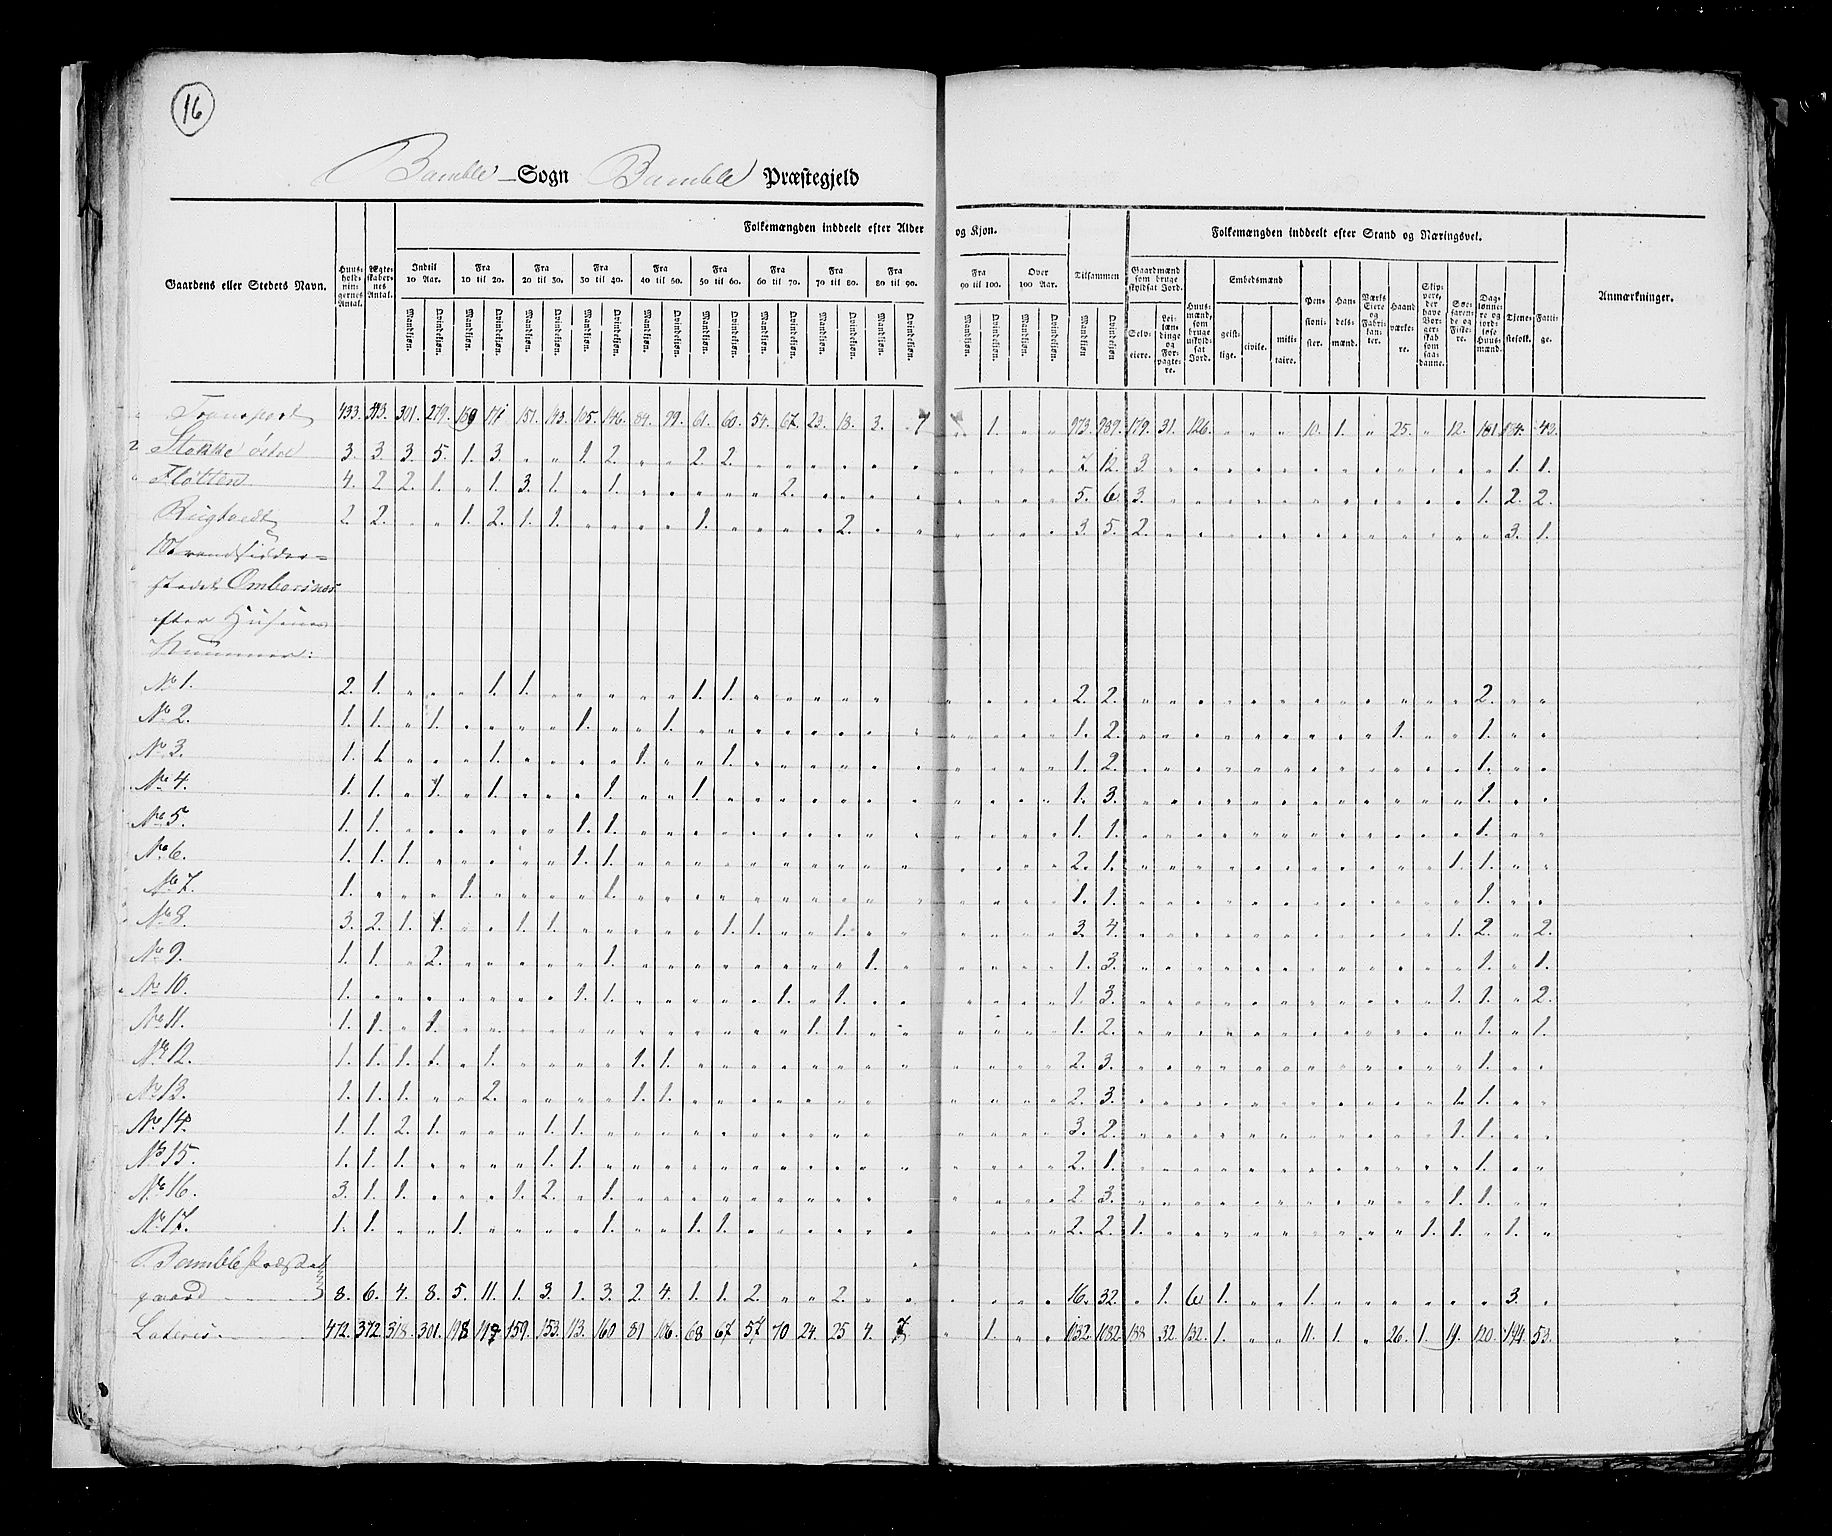 16
Bamble Sogn Bamble Præstegjeld
Gaardens eller Stedets Navn. Huus-holdnin-gernes Antal. Ægte-skaber-nes Antal. Folkemængden inddeelt efter Alder og Kjøn. Tilsammen Folkemængden inddeelt efter Stand og Næringsvei. Anmærkninger.
Indtil 10 Aar. Fra 10 til 20. Fra 20 til 30. Fra 30 til 40. Fra 40 til 50. Fra 50 til 60. Fra 60 til 70. Fra 70 til 80. Fra 80 til 90. Fra 90 til 100. Over 100 Aar.
Mandkjøn. Qvindekjøn. Mandkjøn. Qvindekjøn. Mandkjøn. Qvindekjøn. Mandkjøn. Qvindekjøn. Mandkjøn. Qvindekjøn. Mandkjøn. Qvindekjøn. Mandkjøn. Qvindekjøn. Mandkjøn. Qvindekjøn. Mandkjøn. Qvindekjøn. Mandkjøn. Qvindekjøn. Mandkjøn. Qvindekjøn. Mandkjøn Qvindekjøn
Gaardmænd som bruge skyldsat Jord. Selv-eiere. Lei-læn-dinge og For-pagte-re. Huus-mænd, som bruge uskyld-sat Jord. Embedsmænd geist-lige. civile. mili-taire. Pen-sioni-ster. Han-dels-mænd. Værks Eiere og Fabri-kan-ter. Haand-værke-re. Skip-pere, der have Bor-ger-skab som saa-danne. Søe-farende og Fiske-re. Dag-lønne-re og jord-løse Huus-mænd. Tjene-stefolk. Fatti-ge.
Transport 433. 301. 279. 151. 143. 105. 146. 84. 99. 61. 60. 54. 67. 23. 18. 3. 7 " 1. " " 973. 179. 31. 126. " " " 10. 1. " 25. " 12. 43.
Stokke østre 3. 3. 3. 5. 1. 3. " " 1. 2. " " 2. 2. 7. 12. 3. 1. 1.
Flotten 4. 2. 2. 1. " 1. 3. 1. " 1. 2. 5. 6. 3. 1. 2. 2.
Rugtvedt 2. 2. " " 1. 2. 1. 1. 1. 2. 3. 5. 2. 3. 1.
Strandsidder-
stedet Omborsnæs
efter Husenes
Nummer:
No 1. 2. 1. 1. 1. 1. 1. 2. 2. 2.
No 2. 1. 1. " 1. 1. 1. 1. 2. 1. 1.
No 3. 1. 1. 1. 1. 1. 1. 2. 1.
No 4. 1. 1. " 1. " 1. 1. 1. 1. 3. 1.
No 5. 1. 1. 1. 1. 1. 1. 1.
No 6. 1. 1. 1. 1. 1. 2. 1. 1. 1.
No 7. 1. 1. 1. 1. 1. 1.
No 8. 3. 2. 1. 1. 1. 1. 1. 1. 1. 3. 4. 1. 2. " 2.
No 9. 1. 1. " 2. 1. 1. 1. 3. 1. " 1.
No 10. 1. 1. 1. 1. 1. 1. 3. 1. 1. " 2.
No 11. 1. 1. " 1. 1. 1. 1. 2. 1. " 1.
No 12. 1. 1. 1. 1. " 1. 1. 1. 2. 3. 1.
No 13. 1. 1. 1. 2. 1. 1. 2. 3. 1. 1.
No 14. 1. 1. 2. 1. 1. 1. 3. 2. 1. 1.
No 15. 1. 1. 1. 1. 1. 2. 1. 1.
No 16. 3. 1. 1. 1. 2. " 1. 2. 3. 1. 1.
No 17. 1. 1. 1. 1. 1. 1. 2. 2. 1. 1. 1. " 1.
Bamble Præste
gaard 8. 6. 4. 8. 5. 11. 1. 3. 1. 3. 2. 4. 1. 1. 2. " " 2. 16. 32. " 1. 6 1. " " 1. 3.
Lateris 472. 372. 318. 301. 198 159. 153. 113. 160 81 106. 68 67 57 70 24. 25 4. 7 " 1. " " 1032. 1082. 188 32. 132. 1. " " 11. 1. " 26. 1. 19. 120. 194. 53.